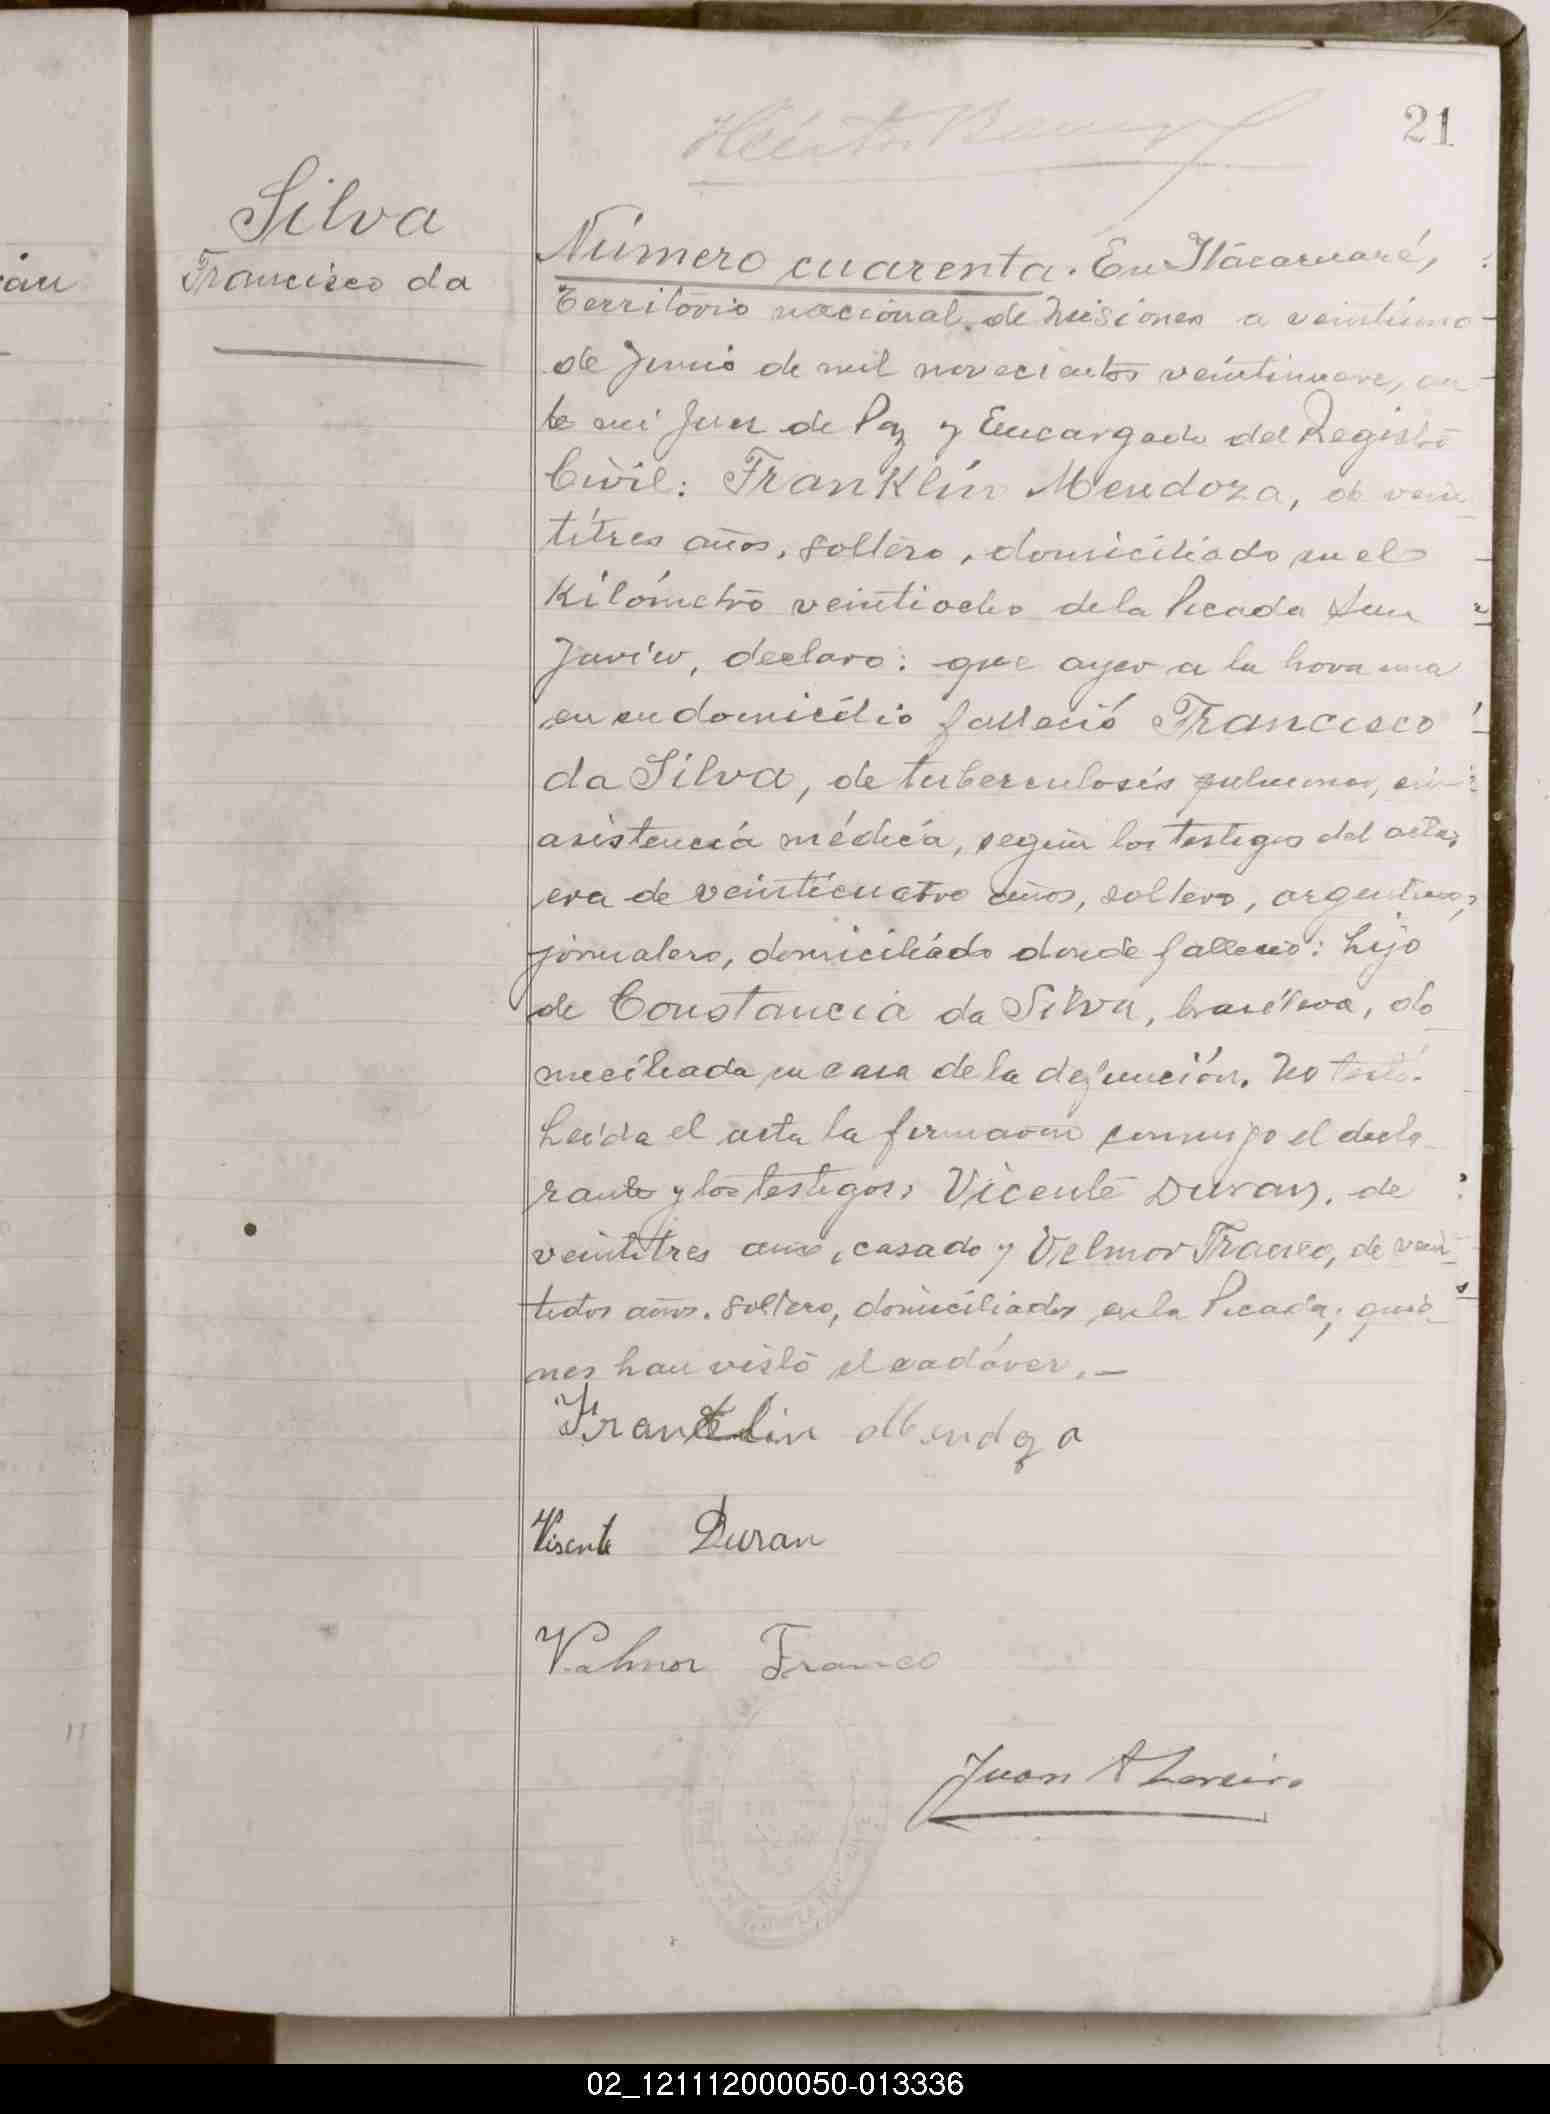 21
Silva
Francisco da
Número cuarenta. En Itacaruaré,
Territorio nacional de Misiones a veintiuno
de Junio de mil novecientos veintinueve, an-
te mi Juez de Paz y Encargado del Registro
Civil: Franklin Mendoza, de vein
titres años, soltero, domiciliado en el
Kilómetro veintiocho de la Picada San
Javier, declaro: que ayer a la hora una
en su domicilio falleció Francisco
da Silva, de tuberculosis pulmonar, sin
asistencia médica, según los testigos del acta,
era de veinticuatro años, soltero, argentino,
jornalero, domiciliado donde falleció: hijo
de Constancia da Silva, brasilera, do
miciliada en casa de la defunción. No testó.
Leida el acta la firmaron conmigo el decla-
rante y los testigos: Vicente Duran, de
veintitres años, casado y Velmor Franco, de vein
tidos años, soltero, domiciliados en la Picada; quie-
nes han visto el cadáver.—
Franklin Mendoza
Visente Duran
Valmor Franco
Juan A
án
02_121112000050-013336